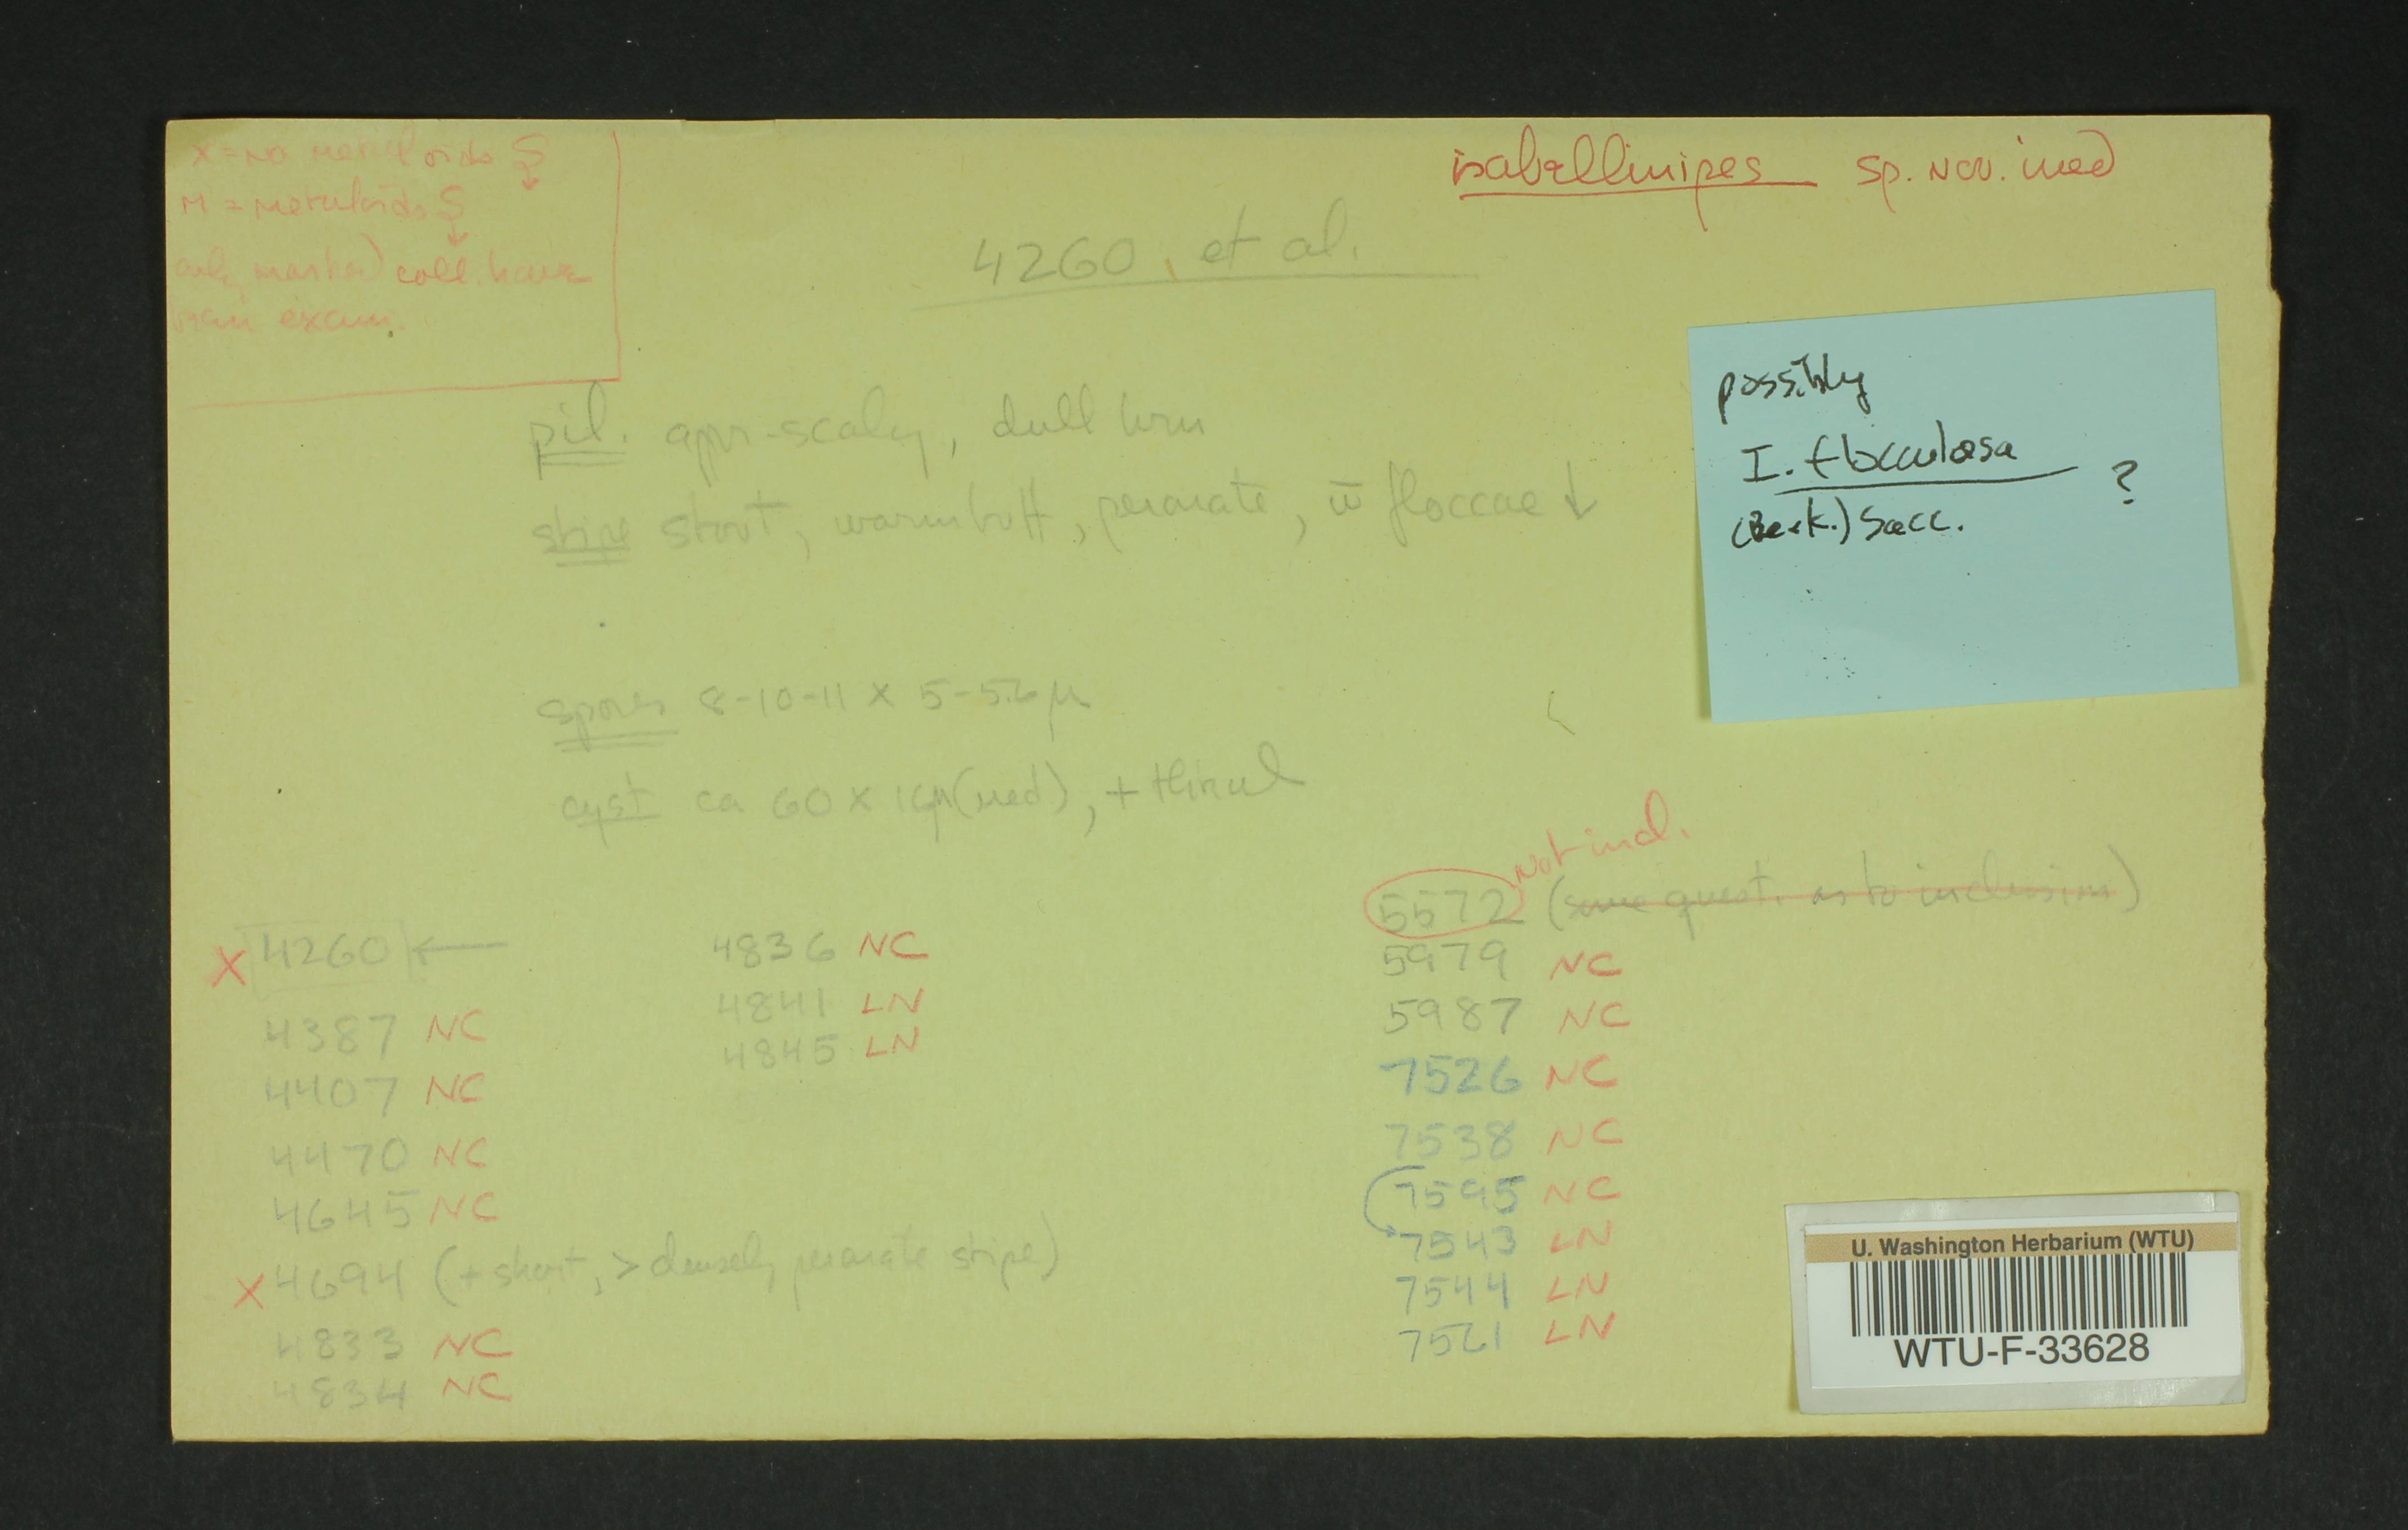 X = no metuloids S↓
M = metuloids S↓
only marked coll. have
been exam.
isabellinipes sp. nov. ined
4260, et al.
pil. appr-scaly, dull brn
stipe stout, warm buff, peronate, w̄ floccae ↓
possibly
I. flocculosa ?
(Berk.) Sacc.
spores 8-10-11 x 5-5.6 μ
cyst ca 60 x 16μ (med), + thinwl
X 4260 ←
4387 NC
4407 NC
4470 NC
4645 NC
X 4694 (+ short, > densely peronate stipe)
4833 NC
4834 NC
4836 NC
4841 LN
4845 LN
5572 Not incl. (some quest. as to inclusion)
5979 NC
5987 NC
7526 NC
7538 NC
7595 NC
7543 LN
7544 LN
7561 LN
U. Washington Herbarium (WTU)
WTU-F-33628